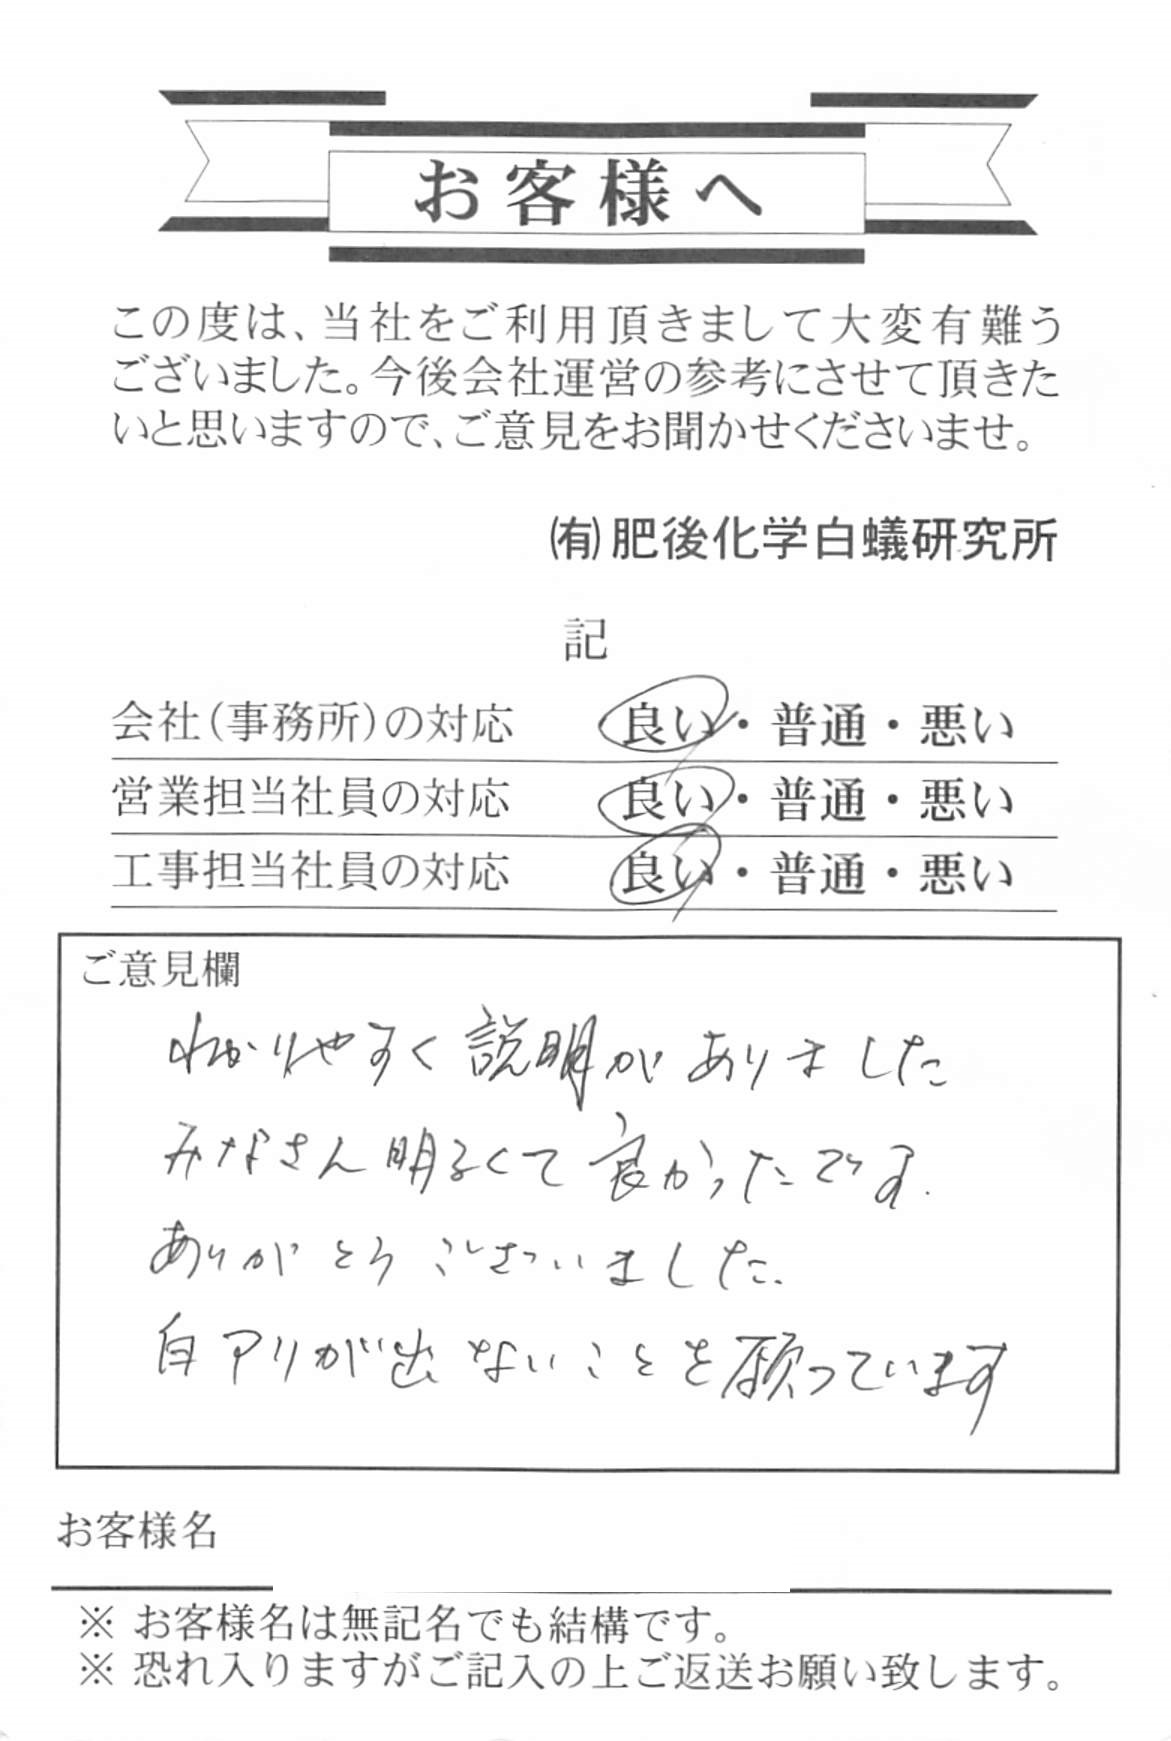 お客様へ
この度は、当社をご利用頂きまして大変有難う
ございました。今後会社運営の参考にさせて頂きた
いと思いますので、ご意見をお聞かせくださいませ。
㈲肥後化学白蟻研究所
記
会社(事務所)の対応 良い・普通・悪い
営業担当社員の対応 良い・普通・悪い
工事担当社員の対応 良い・普通・悪い
ご意見欄
わかりやすく説明がありました
みなさん明るくて良かったです.
ありがとうございました.
白アリが出ないことを願っています
お客様名
※ お客様名は無記名でも結構です。
※ 恐れ入りますがご記入の上ご返送お願い致します。